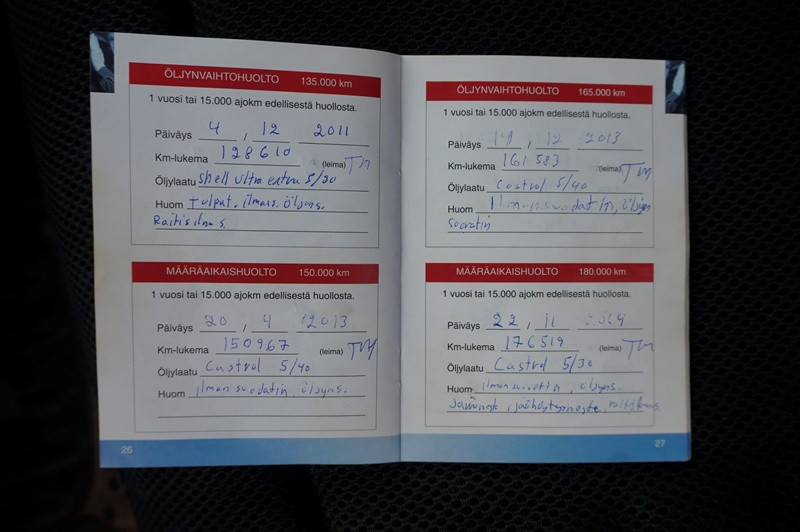 ÖLJYNVAIHTOHUOLTO 135.000 km
1 vuosi tai 15.000 ajokm edellisestä huollosta.
Päiväys 4 / 12 2011
Km-lukema 128610 (leima) TM
Öljylaatu Shell Ultra extra 5/30
Huom Tulpat. ilmans. öljyns.
Raitis ilma s.
MÄÄRÄAIKAISHUOLTO 150.000 km
1 vuosi tai 15.000 ajokm edellisestä huollosta.
Päiväys 20 / 4 2013
Km-lukema 150967 (leima) TM
Öljylaatu Castrol 5/40
Huom ilman suodatin öljyns.
26
ÖLJYNVAIHTOHUOLTO 165.000 km
1 vuosi tai 15.000 ajokm edellisestä huollosta.
Päiväys / 12 2013
Km-lukema 161583 (leima) TM
Öljylaatu Castrol 5/40
Huom öljyn
MÄÄRÄAIKAISHUOLTO 180.000 km
1 vuosi tai 15.000 ajokm edellisestä huollosta.
Päiväys 22 / 11
Km-lukema 176519 (leima) TM
Öljylaatu Castrol 5/30
Huom öljyns.
jäähdytysneste
27